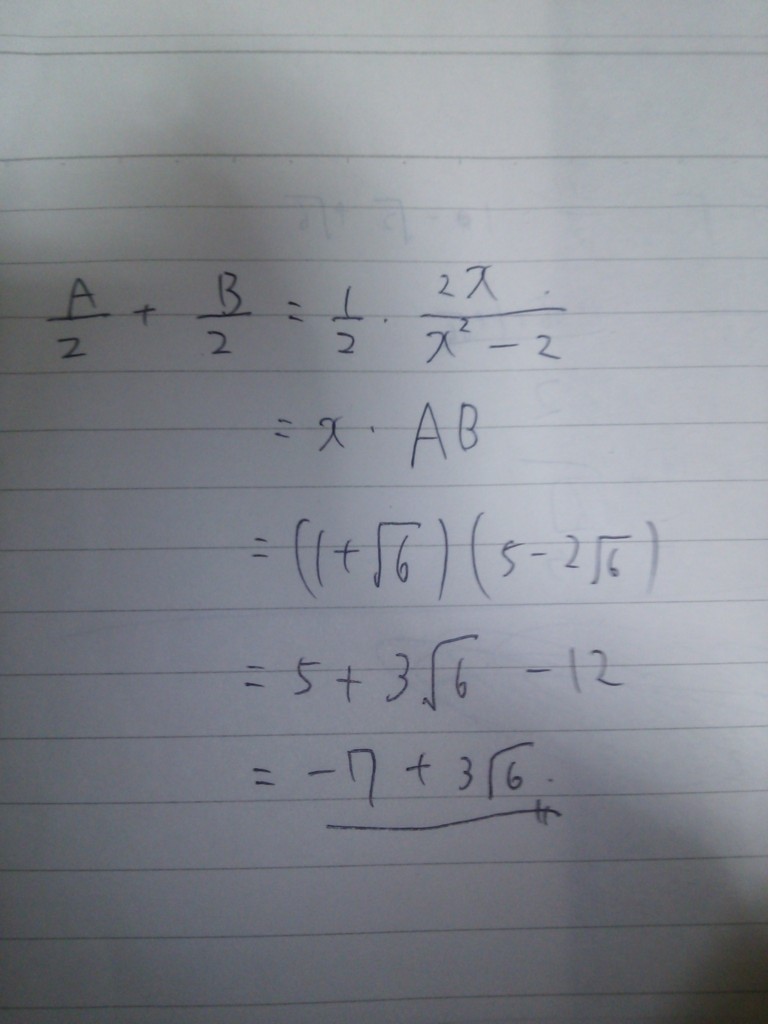 A/2 + B/2 = 1/2 · 2x/(x² - 2)
= x · AB
= (1+√6)(5-2√6)
= 5 + 3√6 - 12
= -7 + 3√6.